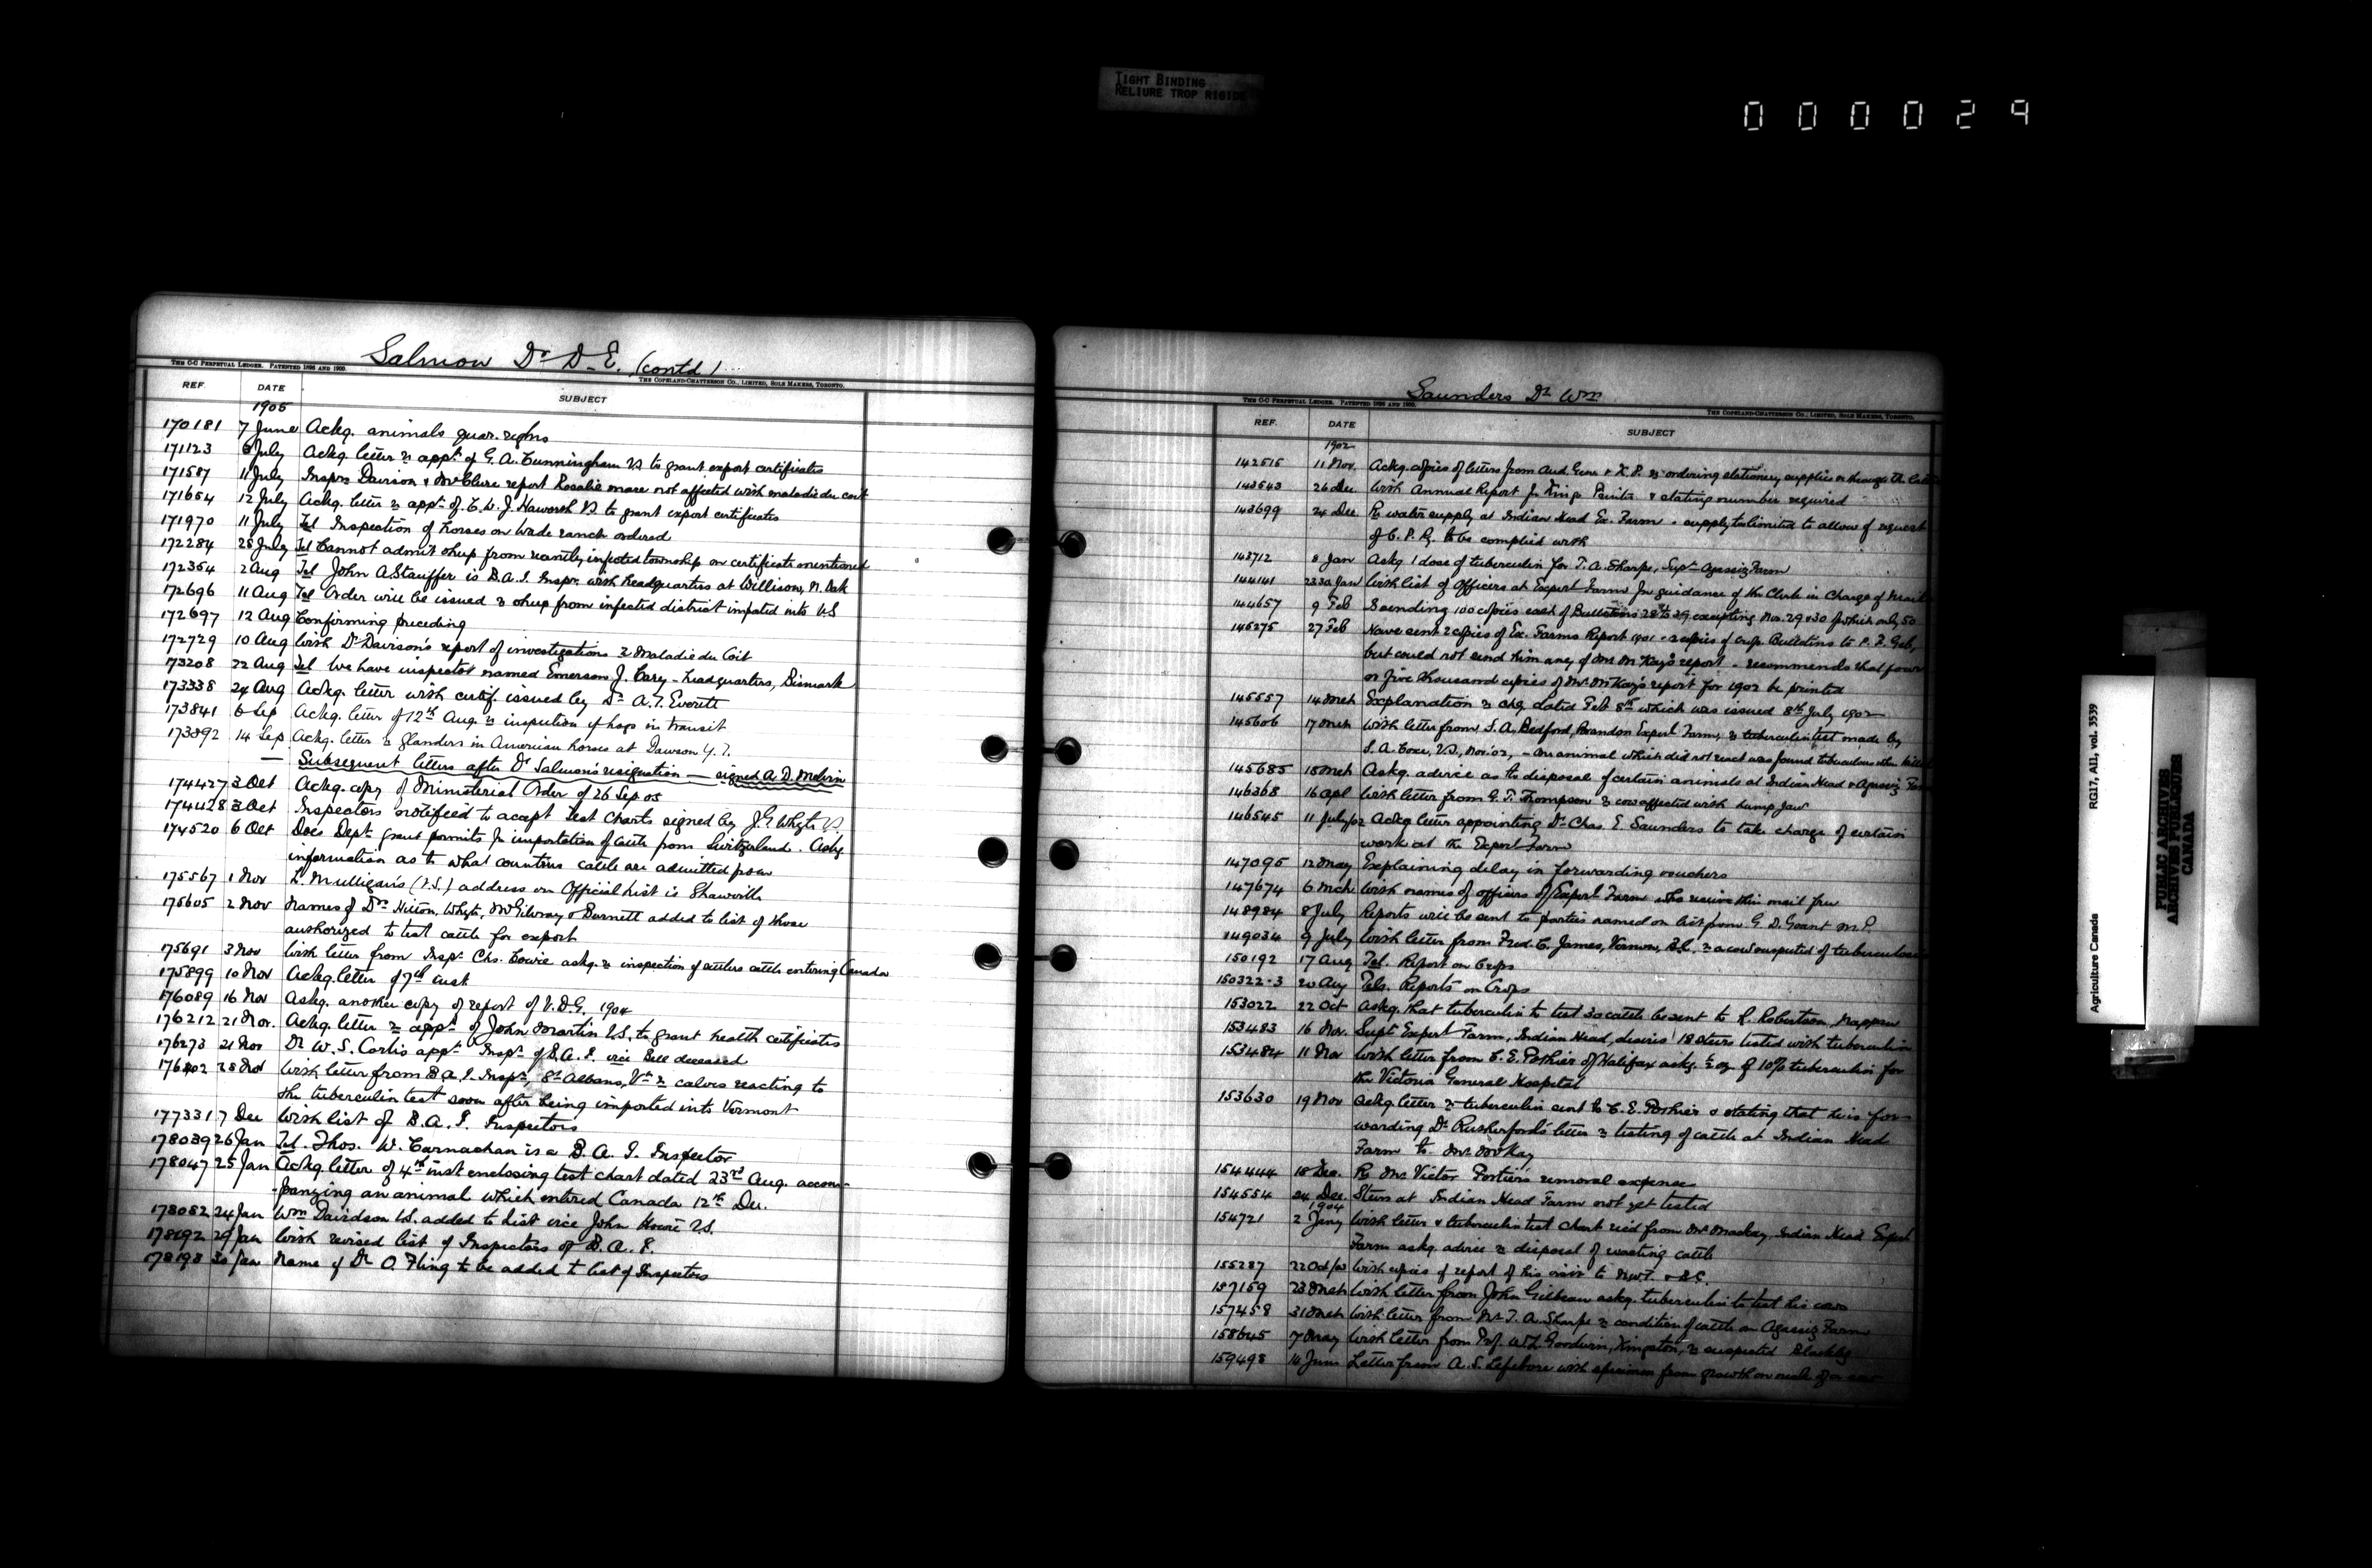 TIGHT BINDING
RELIURE TROP RIGIDE
000029
Salmon Dr D. E. (contd)
THE C-C PERPETUAL LEDGER. PATENTED 1896 AND 1900.
THE COPELAND-CHATTERSON CO., LIMITED, SOLE MAKERS, TORONTO.
REF. DATE SUBJECT
1905
170181 7 June Ackg. animals quar. regns
171123 8 July Ackg. letter re appt of G. A. Cunningham VS to grant export certificates
171587 11 July Insprs Davison & McClure report Rosalie mare not affected with maladie du coit
171654 12 July Ackg. letter re appt of C. W. J. Haworth VS to grant export certificates
171970 11 July Tel Inspection of horses on Wade ranch ordered
172284 28 July Tel Cannot admit sheep from recently infected township on certificate mentioned
172354 2 Aug Tel John A Stauffer is B.A.I. Inspr. with headquarters at Willison, N. Dak
172696 11 Aug Tel Order will be issued re sheep from infected district imported into U.S
172697 12 Aug Confirming preceding
172729 10 Aug With Dr Davison's report of investigations re Maladie du Coit
173208 22 Aug Tel We have inspector named Emerson J. Cary - headquarters, Bismark
173338 24 Aug Ackg. letter with certif. issued by Dr A. T. Everett
173841 6 Sep Ackg. letter of 12th Aug. re inspection of hogs in transit
173892 14 Sep Ackg. letter re glanders in American horses at Dawson Y.T.
— Subsequent letters after Dr Salmon's resignation — signed A. D. Melvin
174427 3 Oct Ackg. copy of Ministerial Order of 26 Sep 05
174428 3 Oct Inspectors notified to accept test charts signed by J. G. Whyte VS
174520 6 Oct Does Dept. grant permits for importation of cattle from Switzerland. Askg
information as to what countries cattle are admitted from
175567 1 Nov L. Mulligan's (V.S.) address on Official List is Shawville
175605 2 Nov Names of Drs Hilton, Whyte, McGilvray & Burnett added to list of those
authorized to test cattle for export
175691 3 Nov With letter from Inspr Chs. Cowie askg. re inspection of settlers cattle entering Canada
175899 10 Nov Ackg. letter of 7th inst.
176089 16 Nov Askg. another copy of report of V.D.G. 1904
176212 21 Nov. Ackg. letter re appt of John Martin V.S. to grant health certificates
176273 21 Nov Dr W. S. Corlis appt Inspr of B.A.I. vice Bell deceased
176402 28 Nov With letter from B.A.I. Inspr, St Albans, Vt re calves reacting to
the tuberculin test soon after being imported into Vermont
177331 7 Dec With list of B.A.I. Inspectors
178039 26 Jan Tel. Thos. W. Carnachan is a B.A.I. Inspector
178047 25 Jan Ackg letter of 4th inst enclosing test chart dated 23rd Aug. accom-
-panying an animal which entered Canada 12th Dec.
178082 24 Jan Wm Davidson V.S. added to list vice John Howie V.S.
178192 29 Jan With revised list of Inspectors of B.A.I.
178198 30 Jan Name of Dr O. Fling to be added to list of Inspectors
Saunders Dr Wm
THE C-C PERPETUAL LEDGER. PATENTED 1896 AND 1900.
THE COPELAND-CHATTERSON CO., LIMITED, SOLE MAKERS, TORONTO.
REF. DATE SUBJECT
1902
142515 11 Nov. Ackg. copies of letters from Aud. Genr & K.P. re ordering stationery supplies through the
143543 26 Dec. With Annual Report for Kings Printer & stating number required
143699 24 Dec Re water supply at Indian Head Ex. Farm - supply too limited to allow of request
of C.P.Ry to be complied with
143712 8 Jan Ackg 1 dose of tuberculin for T. A. Sharpe, Supt Agassiz Farm
144141 Jan With list of Officers at Expert Farm for guidance of the Clerk in Charge of Mails
144657 9 Feb Sending 100 copies each of Bulletins 28 to 39 excepting Nos. 29 & 30 of which only 50
145275 27 Feb Have sent 2 copies of Ex. Farms Report 1901 - copies of Bulletins to
but could not send him any of Mr McKay's report - recommends that four
or five thousand copies of Mr McKay's report for 1902 be printed
145557 14 Mch Explanation re chq dated Feb 8th which was issued 8th July 1902
145606 17 Mch With letter from S. A. Bedford, Brandon Expert Farm, re tuberculin test made by
S. A. Coxe, V.S, Nov. 02, - an animal which did not react was found tuberculous when killed
145685 18 Mch Askg. advice as to disposal of certain animals at Indian Head & Agassiz Farm
146368 16 Apl With letter from G. T. Thompson re cow affected with lump jaw
146545 11 July/02 Ackg letter appointing Dr Chas. E. Saunders to take charge of certain
work at the Expert Farm
147095 12 May Explaining delay in forwarding vouchers
147674 6 Mch With names of officers of Expert Farm who receive their mail free
148984 8 July Reports will be sent to parties named on list from G. D. Grant M.P.
149034 9 July With letter from Fred. C. James, Vernon, B.C. re a cow suspected of tuberculosis
150192 17 Aug Tel. Report on Crops
150322-3 20 Aug Tels. Reports on Crops
153022 22 Oct Askg. that tuberculin to test 30 cattle be sent to R. Robertson, Nappan
153483 16 Nov. Supt Expert Farm, Indian Head, desires 18 steers tested with tuberculin
153484 11 Nov With letter from C. E. Puttner of Halifax askg. ½ oz of 10% tuberculin for
the Victoria General Hospital
153630 19 Nov Ackg. letter re tuberculin sent to C. E. Puttner & stating that he is for-
warding Dr Rutherford's letter re testing of cattle at Indian Head
Farm to Mr McKay
154444 18 Dec. Re Mr Victor Fortier's removal expenses
154554 24 Dec. Steers at Indian Head Farm not yet tested
1904
154721 2 Jany With letter & tuberculin test chart recd from Mr Mackay, Indian Head Expert
Farm askg. advice re disposal of reacting cattle
155287 22 Oct/03 With copies of report of his visit to N.W.T. & B.C.
157159 23 Mch With letter from John Gilbeau askg. tuberculin to test his cows
157458 31 Mch With letter from Mr T. A. Sharpe re condition of cattle on Agassiz Farm
158645 7 May With letter from Prof. W. L. Goodwin, Kingston, re suspected Blackleg
159498 14 June Letter from A. S. Lefebvre with specimen from growth on neck of a cow
Agriculture Canada RG17, AII, vol. 3539
PUBLIC ARCHIVES
ARCHIVES PUBLIQUES
CANADA